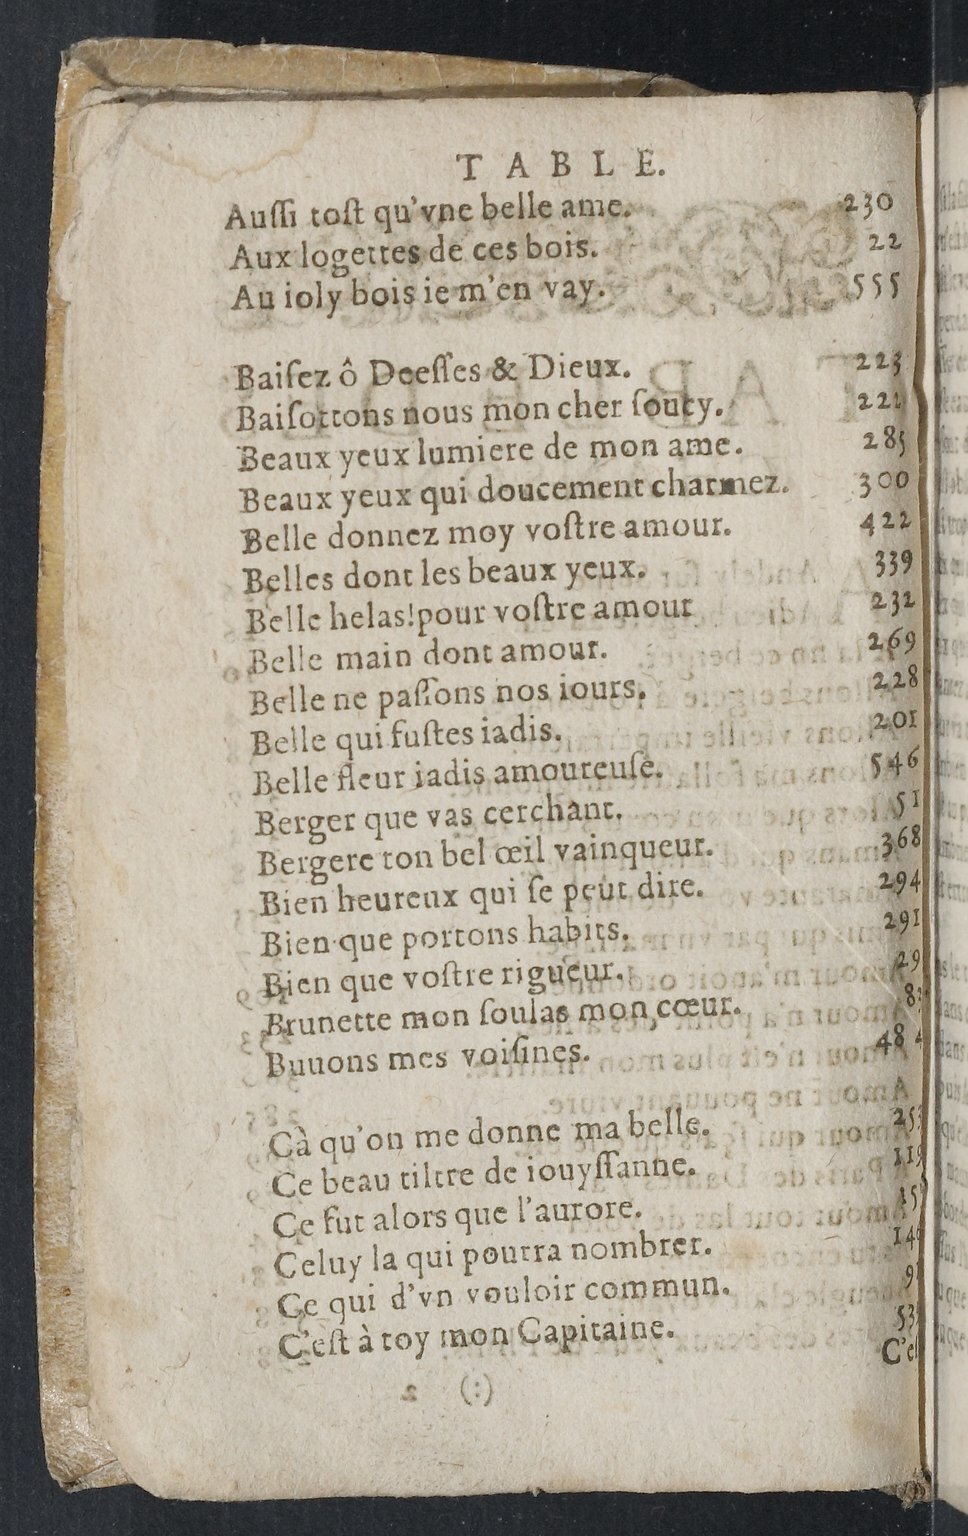 TABLE.
Auſſi toſt qu'vne belle ame. 230
Aux logettes de ces bois. 22
Au ioly bois ie m'en vay. 555
Baiſez ô Deeſſes & Dieux. 223
Baiſottons nous mon cher ſoucy. 222
Beaux yeux lumiere de mon ame. 285
Beaux yeux qui doucement charmez. 300
Belle donnez moy voſtre amour. 422
Belles dont les beaux yeux. 339
Belle helas!pour voſtre amour 232
Belle main dont amour. 269
Belle ne paſſons nos iours. 228
Belle qui fuſtes iadis. 201
Belle fleur iadis amoureuſe. 546
Berger que vas cerchant. 51
Bergere ton bel œil vainqueur. 368
Bien heureux qui ſe peut dire. 294
Bien que portons habits. 291
Bien que voſtre rigueur. 29
Brunette mon ſoulas mon cœur.
Buuons mes voiſines. 484
Cà qu'on me donne ma belle.
Ce beau tiltre de iouyſſanne. 119
Ce fut alors que l'aurore.
Celuy la qui pourra nombrer.
Ce qui d'vn vouloir commun.
C'eſt à toy mon Capitaine.
(:)